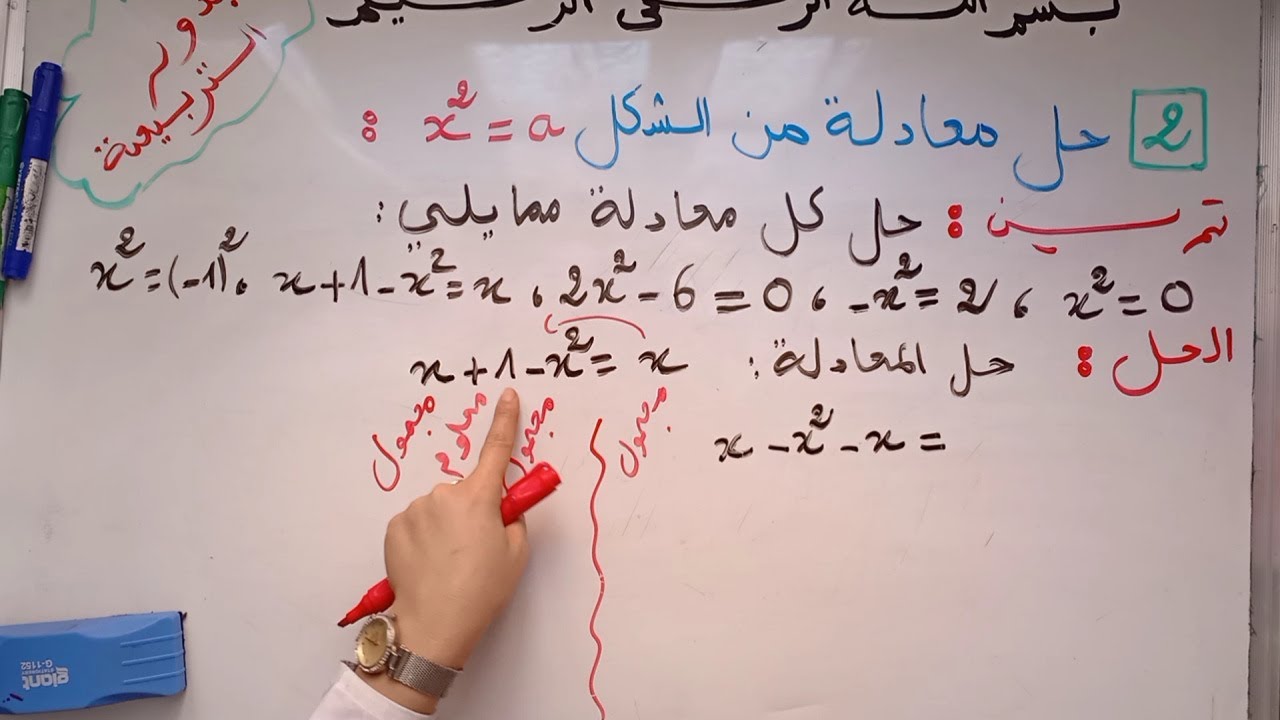 بسم الله الرحمن الرحيم
الجذور
التربيعية
2 حل معادلة من الشكل x² = a :
تمرين : حل كل معادلة مما يلي :
x² = 0 ، -x² = 2 ، 2x² - 6 = 0 ، x + 1 - x² = x ، x² = (-1)²
الحل : حل المعادلة : x + 1 - x² = x
مجهول معلوم مجهول مجهول
x - x² - x =
giotto
G-1152